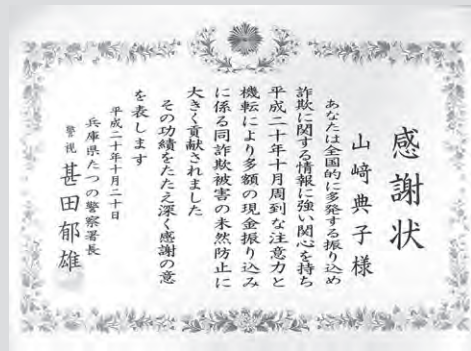 感謝状
山﨑典子様
あなたは全国的に多発する振り込め
詐欺に関する情報に強い関心を持ち
平成二十年十月周到な注意力と
機転により多額の現金振り込み
に係る同詐欺被害の未然防止に
大きく貢献されました
その功績をたたえ深く感謝の意
を表します
平成二十年十月二十日
兵庫県たつの警察署長
警視 甚田郁雄